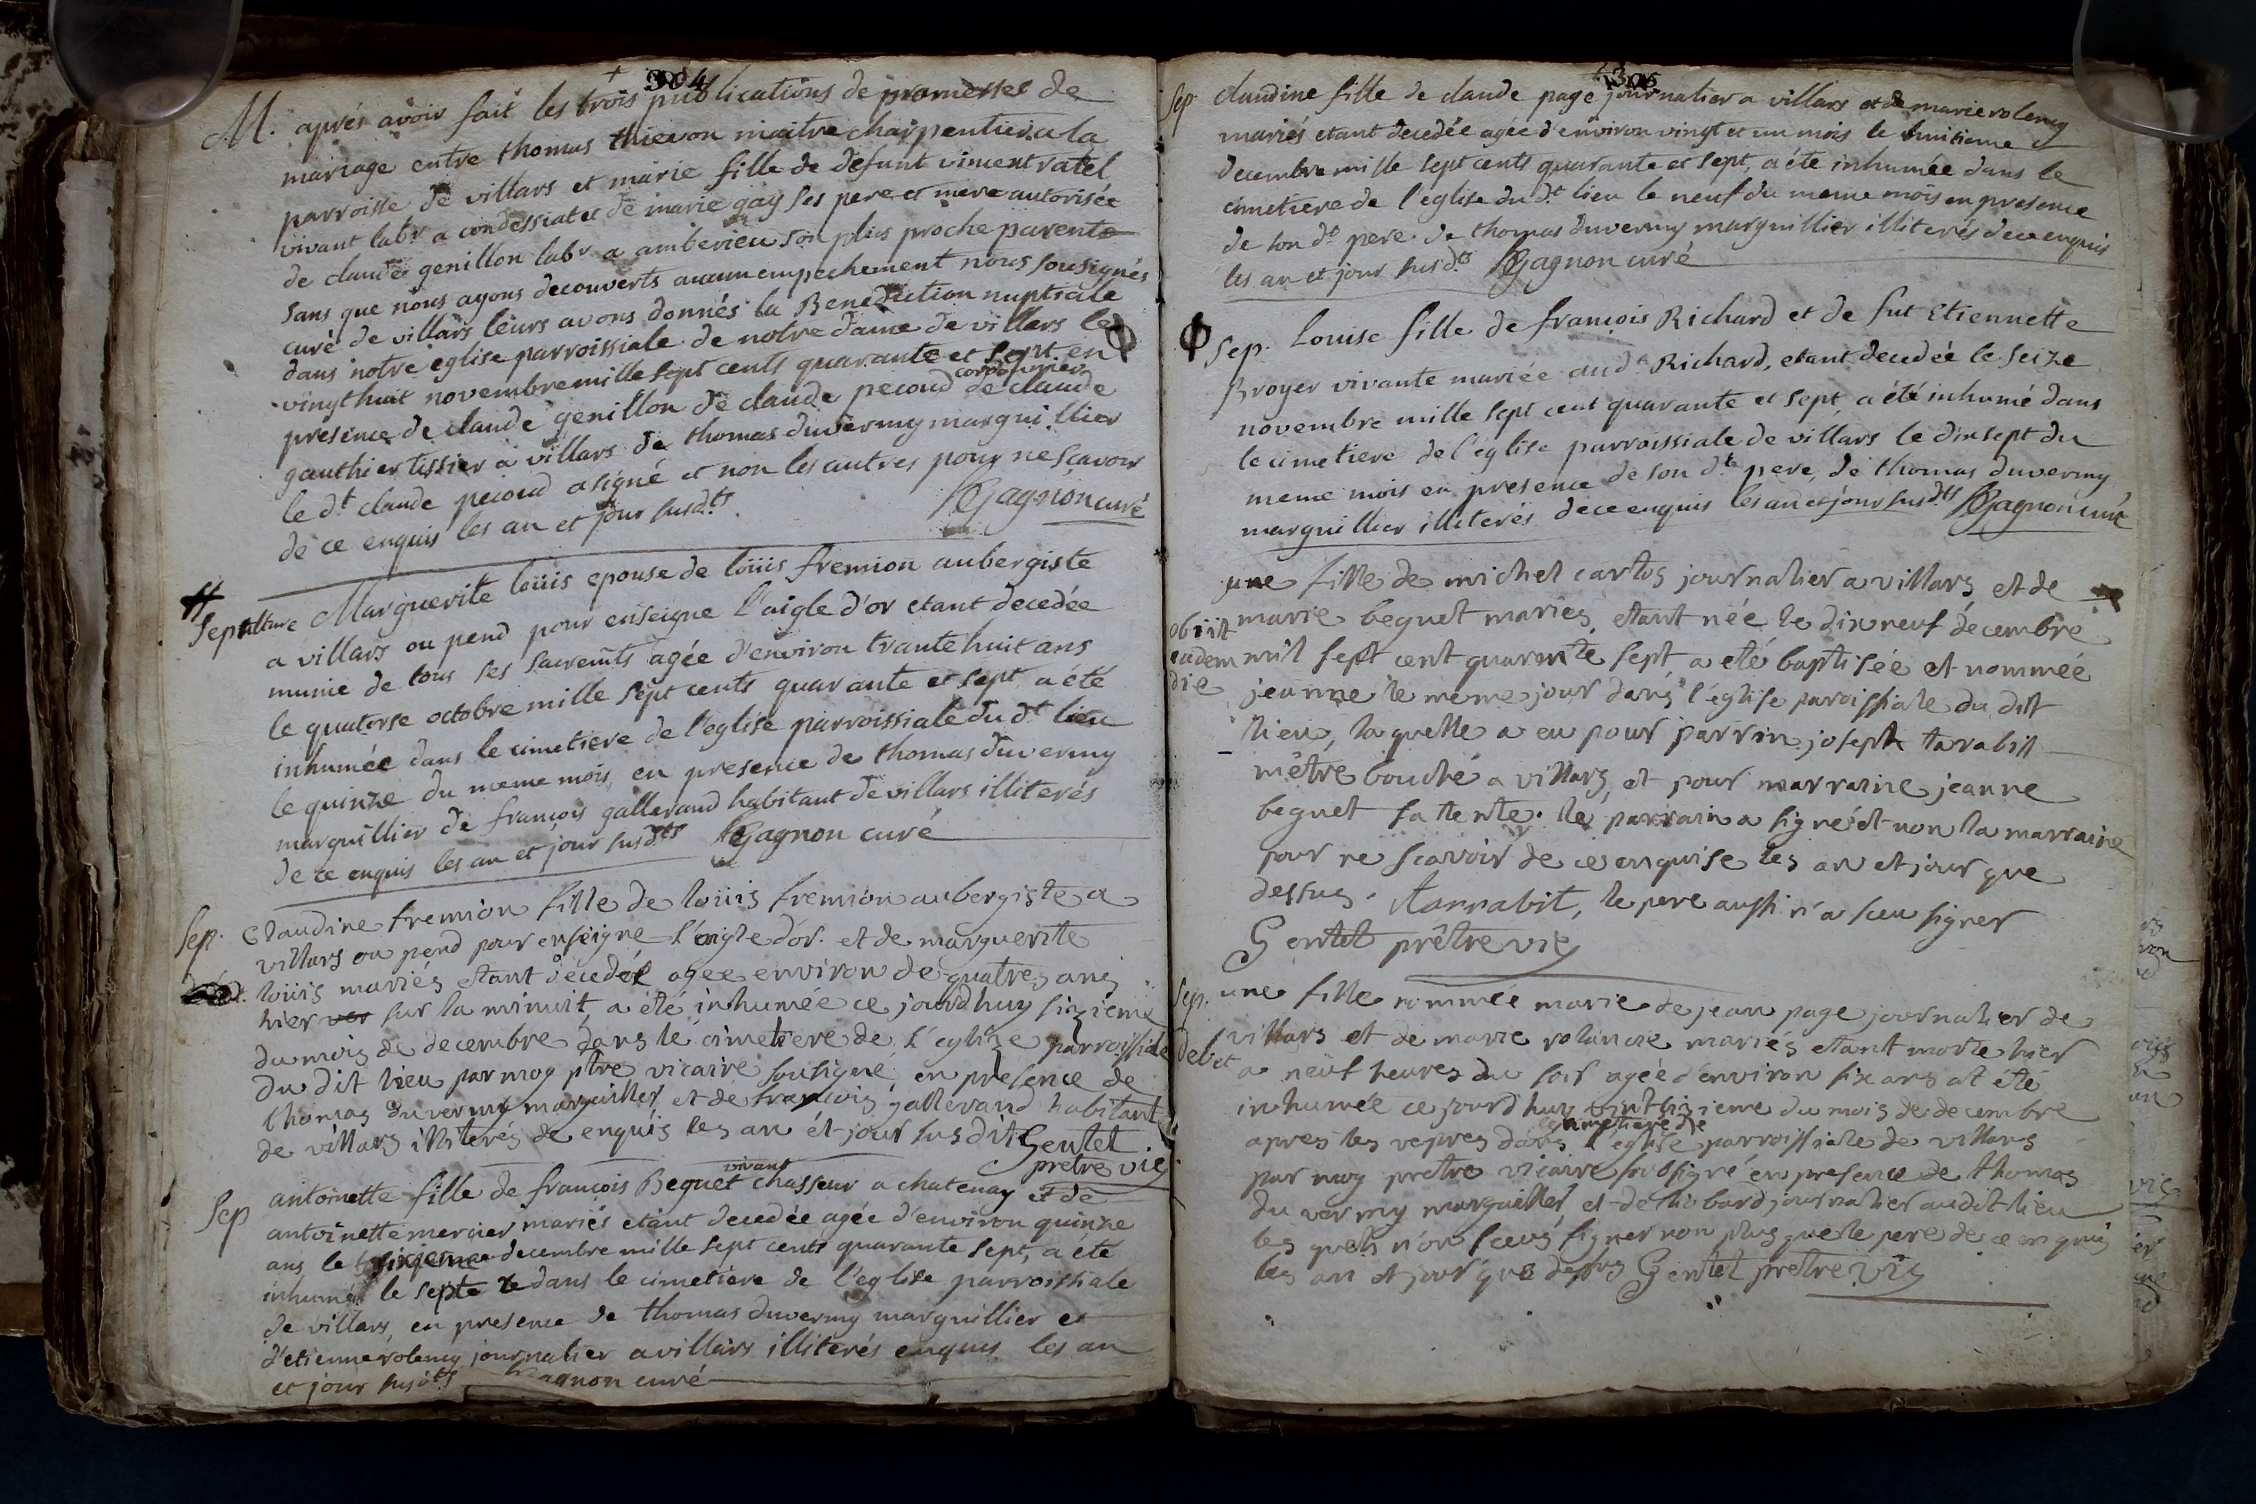 304
M. aprés avoir fait les trois publications de promesses de
mariage entre thomas thievon maitre charpentier a la
parroisse de villars et marie fille de defunt vincent ratel
vivant labr a condessiat et de marie gay ses pere et mere autorisée
de claude genillon labr a amberieu son plus proche parent
sans que nous ayons decouverts aucun empechement nous sousignés
curé de villars leurs avons donnés la Benediction nuptiale
dans notre eglise parroissiale de notre dame de villars le
vingthuit novembre mille sept cents quarante et sept en
presence de claude genillon de claude pecoud cordonnier de claude
gauthier tissier a villars de thomas duvermy marguillier
le dt claude pecoud a signé et non les autres pour ne sçavoir
de ce enquis les an et jour susdts. Gagnon curé
Sepulture Marguerite loüis epouse de loüis fremion aubergiste
a villars ou pend pour enseigne l'aigle d'or etant decedée
munie de tous ses sacremts agée d'environ trante huit ans
le quatorse octobre mille sept cents quarante et sept a été
inhumée dans le cimetiere de l'eglise parroissiale du dt lieu
le quinze du meme mois, en presence de thomas duvermy
marguillier de françois gallerand habitant de villars illiterés
de ce enquis les an et jour susdts Gagnon curé
Sep. Claudine fremion fille de loüis fremion aubergiste a
villars ou pend pour enseigne l'aigle d'or. et de marguerite
loüis mariés etant decedée agee environ de quatres ans
hier sur la minuit, a été inhumée ce jourdhuy sixieme
du mois de decembre dans le cimetiere de l'eglise parroissiale
du dit lieu par moy ptre vicaire sousigné, en presence de
thomas duvermy marguiller et de françois gallerand habitant
de villars illiterés de enquis les an et jour sus dit Gentet
prêtre vic
Sep antoinette fille de françois Beguet vivant chasseur a chatenay et de
antoinette mercier mariés etant decedée agée d'environ quinze
ans le sixieme decembre mille sept cents quarante sept, a été
inhumé le sept dans le cimetiere de l'eglise parroissiale
de villars, en presence de thomas duvermy marguillier et
d'etienne rolency journalier a villars illiterés enquis les an
et jour susdts Gagnon curé
305
Sep claudine fille de claude page journalier a villars et de marie rolency
mariés etant decedée agée d'environ vingt et un mois le huitieme
decembre mille sept cents quarante et sept, a été inhumée dans le
cimetiere de l'eglise du dt lieu le neuf du meme mois en presence
de son dt pere de thomas duvermy marguillier illiterés de ce enquis
les an et jour susdts Gagnon curé
Sep. Louise fille de françois Richard et de fut Etiennette
Broyer vivante mariée aud Richard, etant decedée le seize
novembre mille sept cent quarante et sept, a été inhumé dans
le cimetiere de l'eglise parroissiale de villars le dixsept du
meme mois en presence de son dt pere, de thomas duvermy
marguillier illiterés de ce enquis les an et jour susdts Gagnon curé
une fille de michel cartos journalier a villars et de
marie beguet mariés, etant née le dix neuf décembre
obiit eadem die
mil sept cent quarante sept a eté baptisée et nommée
jeanne le meme jour dans l'église paroissiale du dit
lieu, laquelle a eu pour parrin joseph tarabit
mêtre bouché a villars, et pour marraine jeanne
beguet sa tente. le parrain a signé et non la marraine
pour ne scavoir de ce enquise les an et jour que
dessus. tarrabit, le pere aussi n'a sceu signer
Gentet prêtre vic
Sep. une fille nommée marie de jean page journalier de
villars et de marie rolancie mariés etant morte hier
debet a neuf heures du soir agée d'environ six ans at été
inhumée ce jourd huy vintsixieme du mois de decembre
apres les vepres dans le cimetiere de l'eglise parroissiale de villars
par moy prêtre vicaire soussigné en presence de thomas
du vermy marguiller et de hobard journalier audit lieu
les quels n'on sceus signer non plus que le pere de ce enquis
les an et jour que dessus Gentet prêtre vic